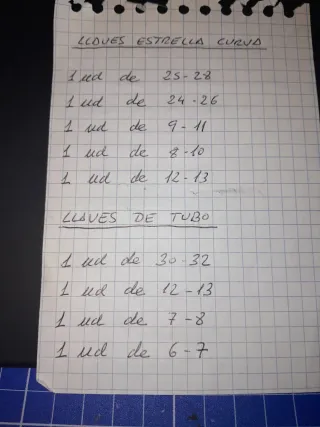 LLAVES ESTRELLA CURVA
1 ud de 25-28
1 ud de 24-26
1 ud de 9-11
1 ud de 8-10
1 ud de 12-13
LLAVES DE TUBO
1 ud de 30-32
1 ud de 12-13
1 ud de 7-8
1 ud de 6-7